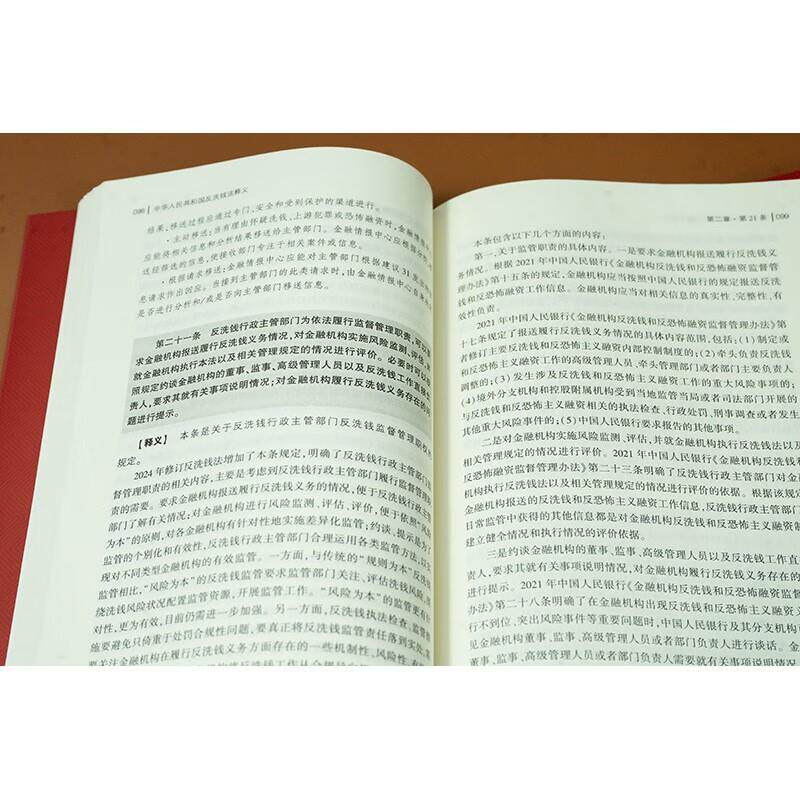 098 中华人民共和国反洗钱法释义
结果,移送过程应通过专门、安全和受到保护的渠道进行。
·主动移送:当有理由怀疑洗钱、上游犯罪或恐怖融资时,金融情报中心
应能将相关信息和分析结果移送给主管部门。金融情报中心应根据分
送经筛选的信息,使接收部门专注于相关案件或信息。
·根据请求移送:金融情报中心应能对主管部门根据建议31发出的
息请求作出回应。当接到主管部门的此类请求时,由金融情报中心自
是否进行分析和/或是否向主管部门移送信息。
第二十一条 反洗钱行政主管部门为依法履行监督管理职责,可以
求金融机构报送履行反洗钱义务情况,对金融机构实施风险监测、评估,
就金融机构执行本法以及相关管理规定的情况进行评价。必要时可以
照规定约谈金融机构的董事、监事、高级管理人员以及反洗钱工作直接
责人,要求其就有关事项说明情况;对金融机构履行反洗钱义务存在的
题进行提示。
【释义】 本条是关于反洗钱行政主管部门反洗钱监督管理职权的
规定。
2024年修订反洗钱法增加了本条规定,明确了反洗钱行政主管部门
督管理职责的相关内容,主要是考虑到反洗钱行政主管部门履行监督管理
责的需要。要求金融机构报送履行反洗钱义务的情况,便于反洗钱行政主管
部门了解有关情况;对金融机构进行风险监测、评估、评价,便于依照“风险
为本”的原则,对各金融机构有针对性地实施差异化监管;约谈、提示是为了
监管的个别化和有效性,反洗钱行政主管部门合理运用各类监管方法,以
现对不同类型金融机构的有效监管。一方面,与传统的“规则为本”反洗钱
监管相比,“风险为本”的反洗钱监管要求监管部门关注、评估洗钱风险,
绕洗钱风险状况配置监管资源,开展监管工作。“风险为本”的监管更有
对性,更为有效,目前仍需进一步加强。另一方面,反洗钱执法检查、监管
施要避免只倚重于处罚合规性问题,要真正将反洗钱监管责任落到实处,
要关注金融机构在履行反洗钱义务方面存在的一些机制性、风险性
第二章·第21条 099
本条包含以下几个方面的内容:
第一,关于监管职责的具体内容。一是要求金融机构报送履行反洗钱义
务情况。根据2021年中国人民银行《金融机构反洗钱和反恐怖融资监督管
理办法》第十五条的规定,金融机构应当按照中国人民银行的规定报送反洗
钱和反恐怖主义融资工作信息。金融机构应当对相关信息的真实性、完整性、有
效性负责。
2021年中国人民银行《金融机构反洗钱和反恐怖融资监督管理办法》第
十七条规定了报送履行反洗钱义务情况的具体内容范围,包括:(1)制定或
者修订主要反洗钱和反恐怖主义融资内部控制制度的;(2)牵头负责反洗钱
和反恐怖主义融资工作的高级管理人员、牵头管理部门或者部门主要负责人
调整的;(3)发生涉及反洗钱和反恐怖主义融资工作的重大风险事项的;
(4)境外分支机构和控股附属机构受到当地监管当局或者司法部门开展的
与反洗钱和反恐怖主义融资相关的执法检查、行政处罚、刑事调查或者发生
其他重大风险事件的;(5)中国人民银行要求报告的其他事项。
二是对金融机构实施风险监测、评估,并就金融机构执行反洗钱法以及
相关管理规定的情况进行评价。2021年中国人民银行《金融机构反洗钱和
反恐怖融资监督管理办法》第二十三条明确了反洗钱行政主管部门对金融
机构执行反洗钱法以及相关管理规定的情况进行评价的依据。根据该规定
金融机构报送的反洗钱和反恐怖主义融资工作信息,反洗钱行政主管部门
日常监管中获得的其他信息都是对金融机构反洗钱和反恐怖主义融资制
建立健全情况和执行情况的评价依据。
三是约谈金融机构的董事、监事、高级管理人员以及反洗钱工作直
责人,要求其就有关事项说明情况,对金融机构履行反洗钱义务存在的
进行提示。2021年中国人民银行《金融机构反洗钱和反恐怖融资监督
办法》第二十八条明确了在金融机构出现反洗钱和反恐怖主义融资义
行不到位、突出风险事件等重要问题时,中国人民银行及其分支机构可
见金融机构董事、监事、高级管理人员或者部门负责人进行谈话。金
董事、监事、高级管理人员或者部门负责人需要就有关事项说明情况